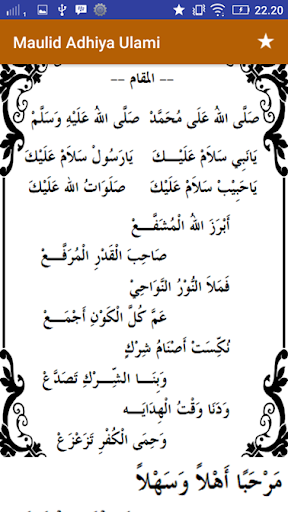 22.20
Maulid Adhiya Ulami
-- المقام --
صَلَّى اللهُ عَلَى مُحَمَّدْ صَلَّى اللهُ عَلَيْهِ وَسَلَّمْ
يَانَبِي سَلاَمْ عَلَيْـــكَ يَارَسُوْلْ سَلاَمْ عَلَيْكَ
يَاحَبِيْبْ سَلاَمْ عَلَيْكَ صَلَوَاتُ الله عَلَيْكَ
أَبْرَزَ اللهُ الْمُشَفَّـــعْ
صَاحِبَ الْقَدْرِ الْمُرَفَّـــعْ
فَمَلاَ النُّوْرُ النَّوَاحِيْ
عَمَّ كُلَّ الْكَوْنِ أَجْمَـــعْ
نُكِّسَتْ أَصْنَامُ شِرْكٍ
وَبِنَـــا الشِّـــرْكِ تَصَدَّعْ
وَدَنَا وَقْتُ الْهِدَايَـــه
وَحِمَى الْكُفْرِ تَزَعْزَعْ
مَرْحَبًا أَهْلاً وَسَهْلاً